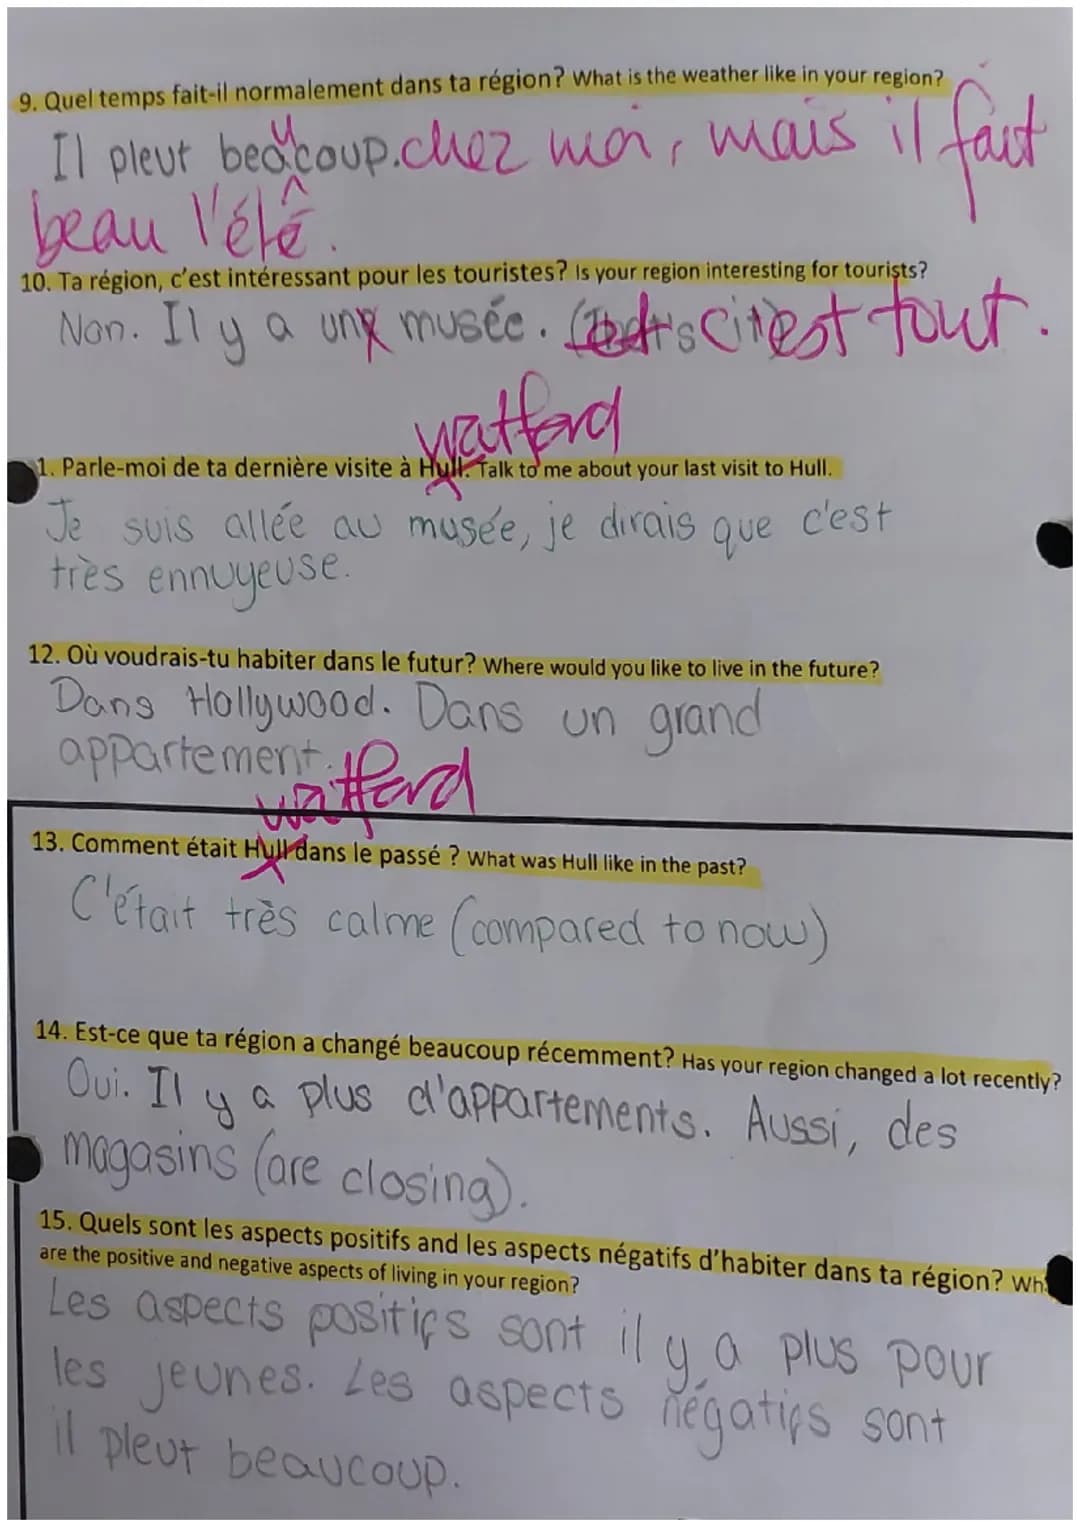 9. Quel temps fait-il normalement dans ta région? What is the weather like in your region?
Il pleut beaucoup. chez moi, mais il fait
beau l'été.
10. Ta région, c'est intéressant pour les touristes? Is your region interesting for tourists?
Non. Il y a un musée. et c'est tout.
watford
1. Parle-moi de ta dernière visite à Hull. Talk to me about your last visit to Hull.
Je suis allée au musée, je dirais que c'est
très ennuyeuse.
12. Où voudrais-tu habiter dans le futur? Where would you like to live in the future?
Dans Hollywood. Dans un grand
appartement.
watford
13. Comment était Hull dans le passé ? What was Hull like in the past?
C'était très calme (compared to now)
14. Est-ce que ta région a changé beaucoup récemment? Has your region changed a lot recently?
Oui. Il y a plus d'appartements. Aussi, des
magasins (are closing).
15. Quels sont les aspects positifs and les aspects négatifs d'habiter dans ta région? Wh
are the positive and negative aspects of living in your region?
Les aspects positifs sont il y a plus pour
les jeunes. Les aspects négatifs sont
il pleut beaucoup.